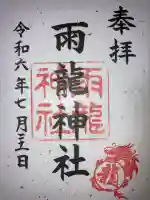 奉拝
雨龍神社
雨龍神社
令和六年七月三十日